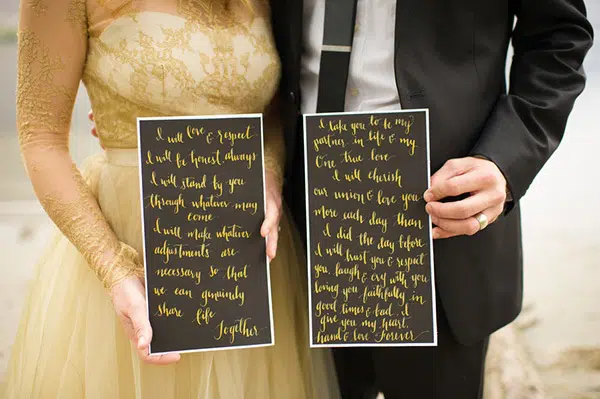 I will love & respect
I will be honest always
I will stand by you
through whatever may
come
I will make whatever
adjustments are
necessary so that
we can genuinly
share life
Together
I take you to be my
partner in life & my
One true love
I will cherish
our union & love you
more each day than
I did the day before
I will trust you & respect
you, laugh & cry with you
loving you faithfully in
good times & bad. I
give you my heart,
hand & love Forever